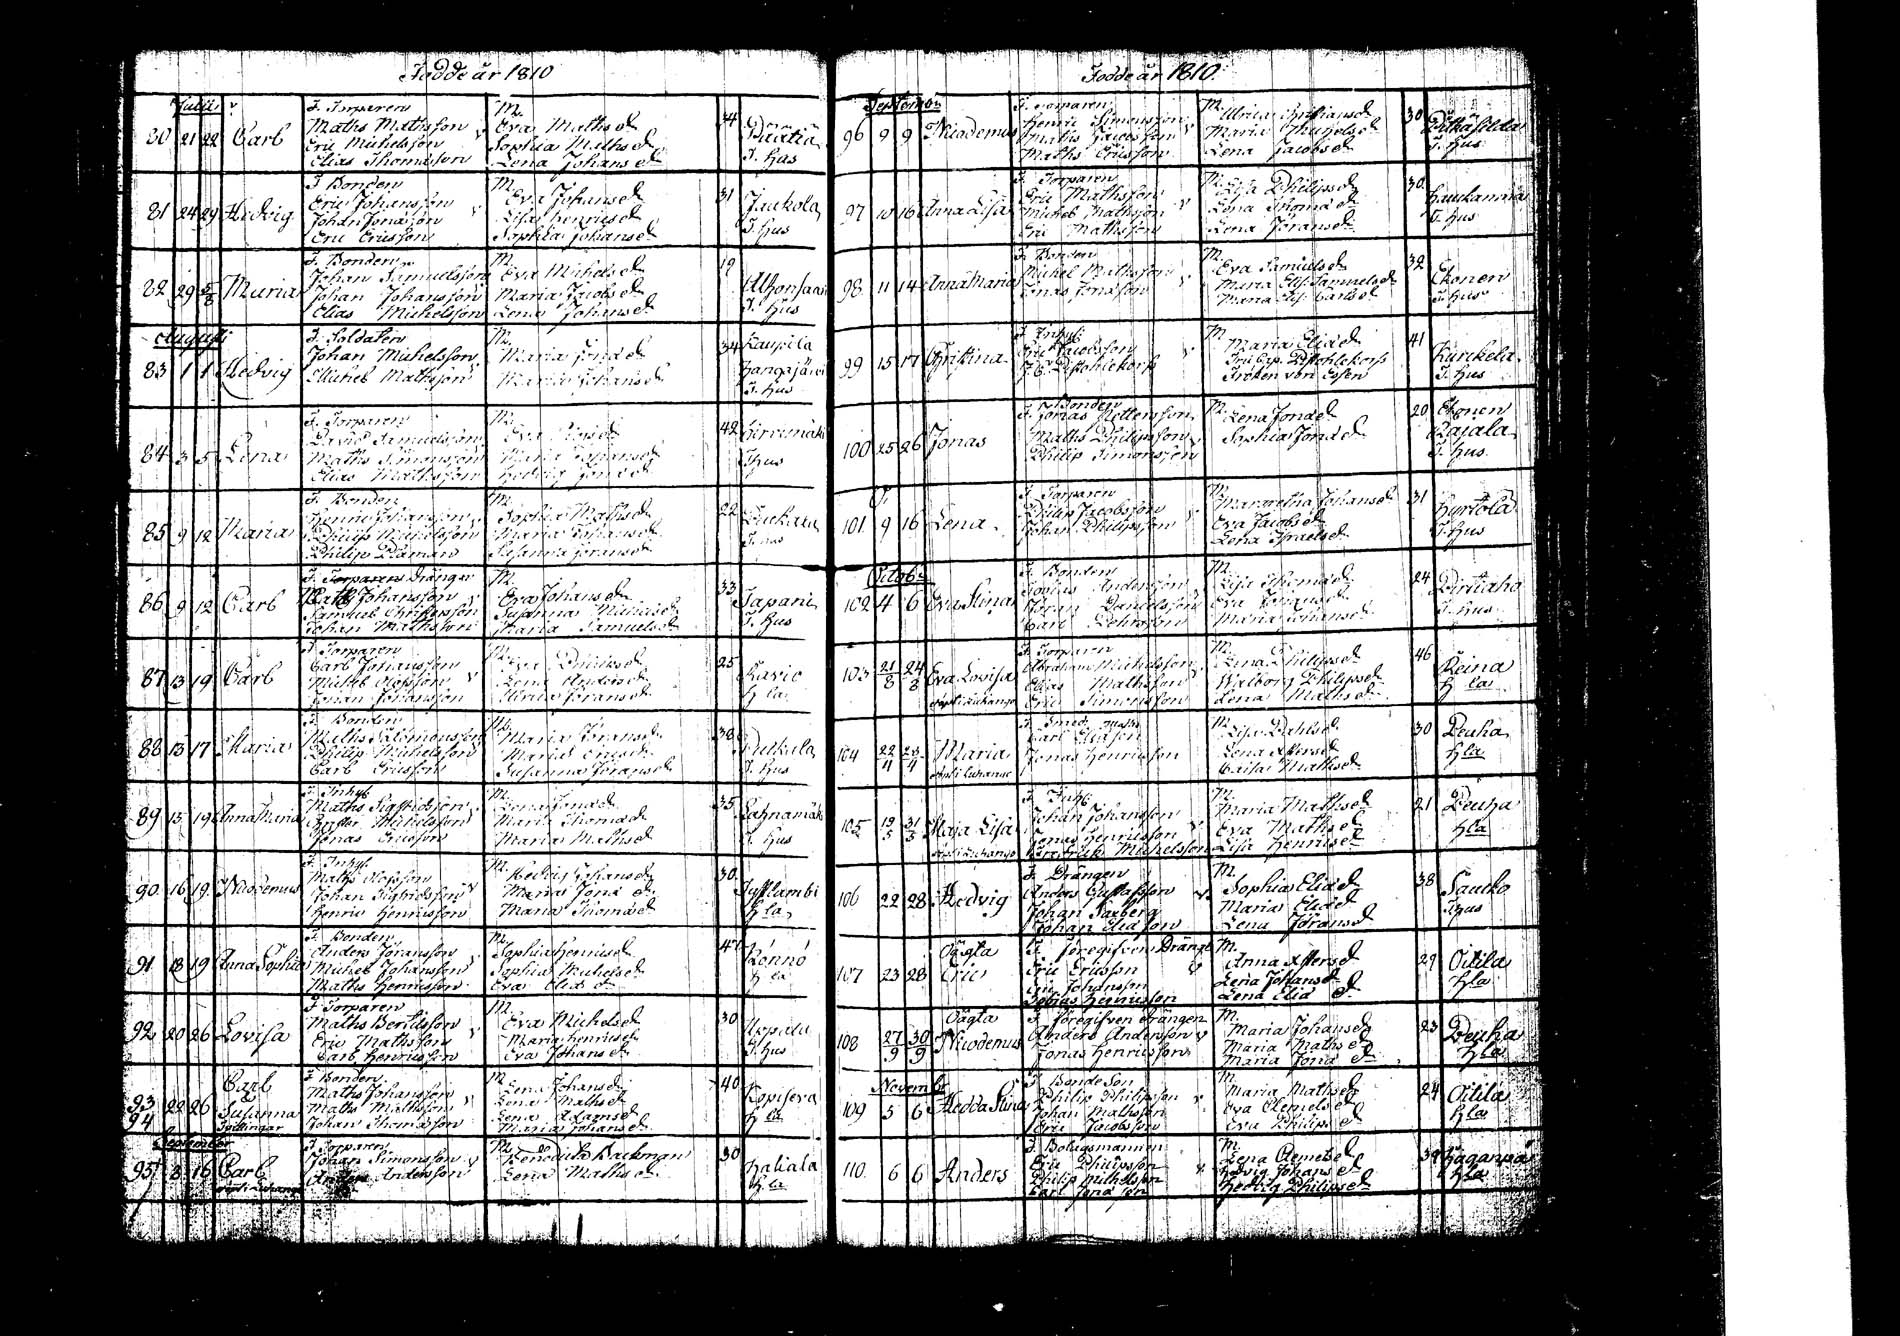 Födde år 1810
Julii
80 21 22 Carl
F. Torparen
Maths Mathsson
Eric Michelsson
Elias Thomasson
M.
Eva Mathsd.
Sophia Mathsd.
Lena Johansd.
34
T. hus
81 24 29 Hedvig
F. Bonden
Eric Johansson
Johan Jonasson
Eric Ericsson
M.
Eva Johansd.
Lisa Henricsd.
Sophia Johansd.
31
Jaukola
T. hus
82 29 5/8 Maria
F. Bonden
Johan Samuelsson
Johan Johansson
Elias Michelsson
M.
Eva Michelsd.
Maria Jacobsd.
Lena Johansd.
19
T. hus
Augusti
83 1 1 Hedvig
F. Soldaten
Johan Michelsson
Michel Mathsson
M.
Maria Jonæd.
Maria Johansd.
34
Kaupila
Kangasjärvi
T. hus
84 3 5 Lena
F. Torparen
David Samuelsson
Maths Simonsson
Elias Mathsson
M.
Eva
Maria Johansd.
Hedvig Jonæd.
42
Hirvimäki
T. hus
85 9 12 Maria
F. Bonden
Henric Johansson
Philip Michelsson
Philip
M.
Sophia Mathsd.
Maria Johansd.
Susanna Jöransd.
22
T. hus
86 9 12 Carl
F. Torparens Drängen
Maths Johansson
Samuel Christersson
Johan Mathsson
M.
Eva Johansd.
Susanna Michelsd.
Maria Samuelsd.
33
Tapani
T. hus
87 13 19 Carl
F. Torparen
Carl Johansson
Michel Olofsson
Johan Johansson
M.
Eva
Lena Andersd.
Ulrica Jöransd.
25
Kavio
H la
88 13 17 Maria
F. Bonden
Maths Salomonsson
Philip Michelsson
Carl Ericsson
M.
Maria Jöransd.
Maria Ericsd.
Susanna Jöransd.
38
T. hus
89 15 19 Anna Maria
F. Inhys.
Maths Sigfridsson
Michelsson
Jonas Ericsson
M.
Lena Jonæd.
Maria Thomæd.
Maria Mathsd.
35
Lahnamäki
T. hus
90 16 19 Nicodemus
F. Inhys.
Maths Olofsson
Johan Sigfridsson
Henric Henricsson
M.
Hedvig Johansd.
Maria Jonæ d.
Maria Thomæd.
30
Syslambi
H la
91 18 19 Anna Sophia
F. Bonden
Anders Jöransson
Michel Johansson
Maths Henricsson
M.
Sophia Henricsd.
Sophia Michelsd.
Eva Eliæ d.
47
Rönnö
H la
92 20 26 Lovisa
F. Torparen
Maths Bertilsson
Eric Mathsson
Carl Henricsson
M.
Eva Michelsd.
Maria Henricsd.
Eva Johansd.
30
Uspala
T. hus
93
94 22 26 Carl
&
Susanna
Tvillingar
F. Bonden
Maths Johansson
Maths Mathsson
Johan Thomasson
M.
Lena Johansd.
Lena Mathsd.
Lena Adamsd.
Maria Johansd.
40
Kopiseva
H la
September
95 8 16 Carl
F. Torparen
Johan Simonsson
Anders Andersson
M.
Benedicta Backman
Lena Mathsd.
30
Haliala
H la
Födde år 1810
September
96 9 9 Nicodemus
F. Torparen
Henric Simonsson
Maths Jacobsson
Maths Ericsson
M.
Ulrica Christiansd.
Maria Michelsd.
Lena Jacobsd.
30
Pitkäsilda
T. hus
97 10 16 Anna Lisa
F. Torparen
Eric Mathsson
Michel Mathsson
Eric Mathsson
M.
Lisa Philipsd.
Lena Thomæd.
Lena Jöransd.
30
Haukanmäa
T. hus
98 11 14 Anna Maria
F. Bonden
Michel Mathsson
Jonas Jonasson
M.
Eva Samuelsd.
Maria Elis. Samuelsd.
Maria Elis. Carlsd.
32
Ekonen
T. hus
99 15 17 Christina
F. Inhys.
Eric Jacobsson
M.
Maria Eliæd.
Fröken von Essen
41
Kurikela
T. hus
100 25 26 Jonas
F. Bonden
Jonas Pettersson
Maths Philipsson
Philip Simonsson
M.
Lena Jonæd.
Sophia Jonæd.
20
Ekonen
Rajala
T. hus
101 9 16 Lena
F. Torparen
Philip Jacobsson
Johan Philipsson
M.
Margaretha Johansd.
Eva Jacobsd.
Lena Israelsd.
31
Hyrtölä
T. hus
October
102 4 6 Eva Stina
F. Bonden
Tobias Andersson
Jöran Danielsson
Carl
M.
Lisa Thomæd.
Eva Jöransd.
Maria Johansd.
24
Pirttiaho
T. hus
103 21/8 24/8 Eva Lovisa
F. Torparen
Abraham Michelsson
Elias Mathsson
Eric Simonsson
M.
Lena Philipsd.
Walborg Philipsd.
Lena Mathsd.
46
Reina
H la
104 22/4 23/4 Maria
Carl Eliasson
Jonas Henricsson
M.
Lisa Dahlsd.
Lena
Caisa Mathsd.
30
Peuha
H la
105 19/5 31/5 Maja Lisa
F. Inhys.
Johan Johansson
Jonas Henricsson
Fredrick Michelsson
M.
Maria Mathsd.
Eva Mathsd.
Lisa Henricsd.
21
Peuha
H la
106 22 28 Hedvig
F. Drängen
Anders Gustafsson
Johan Saxberg
Johan Eliasson
M.
Sophia Eliæd.
Maria Eliæd.
Lena Jöransd.
38
Sauko
T. hus
107 23 28 Oägta
Eric
F. föregifven Dräng
Eric Ericsson
Eric Johansson
Tobias Henricsson
M.
Anna
Lena Johansd.
Lena Eliæ d.
29
Oitila
H la
108 27/9 30/9 Oägta
Nicodemus
F. föregifven drängen
Anders Andersson
Jonas Henricsson
M.
Maria Johansd.
Maria Mathsd.
Maria Jonæ d.
23
Peuha
H la
November
109 5 6 Hedda Stina
F. Bonde Son
Philip Philipsson
Johan Mathsson
Eric Jacobsson
M.
Maria Mathsd.
Eva Clemetsd.
Eva Philipsd.
24
Oitila
H la
110 6 6 Anders
F. Bolagsmannen
Eric Philipsson
Philip Michelsson
Carl Jonæson
M.
Lena Clemetsd.
Hedvig Johansd.
Hedvig Philipsd.
39
H la